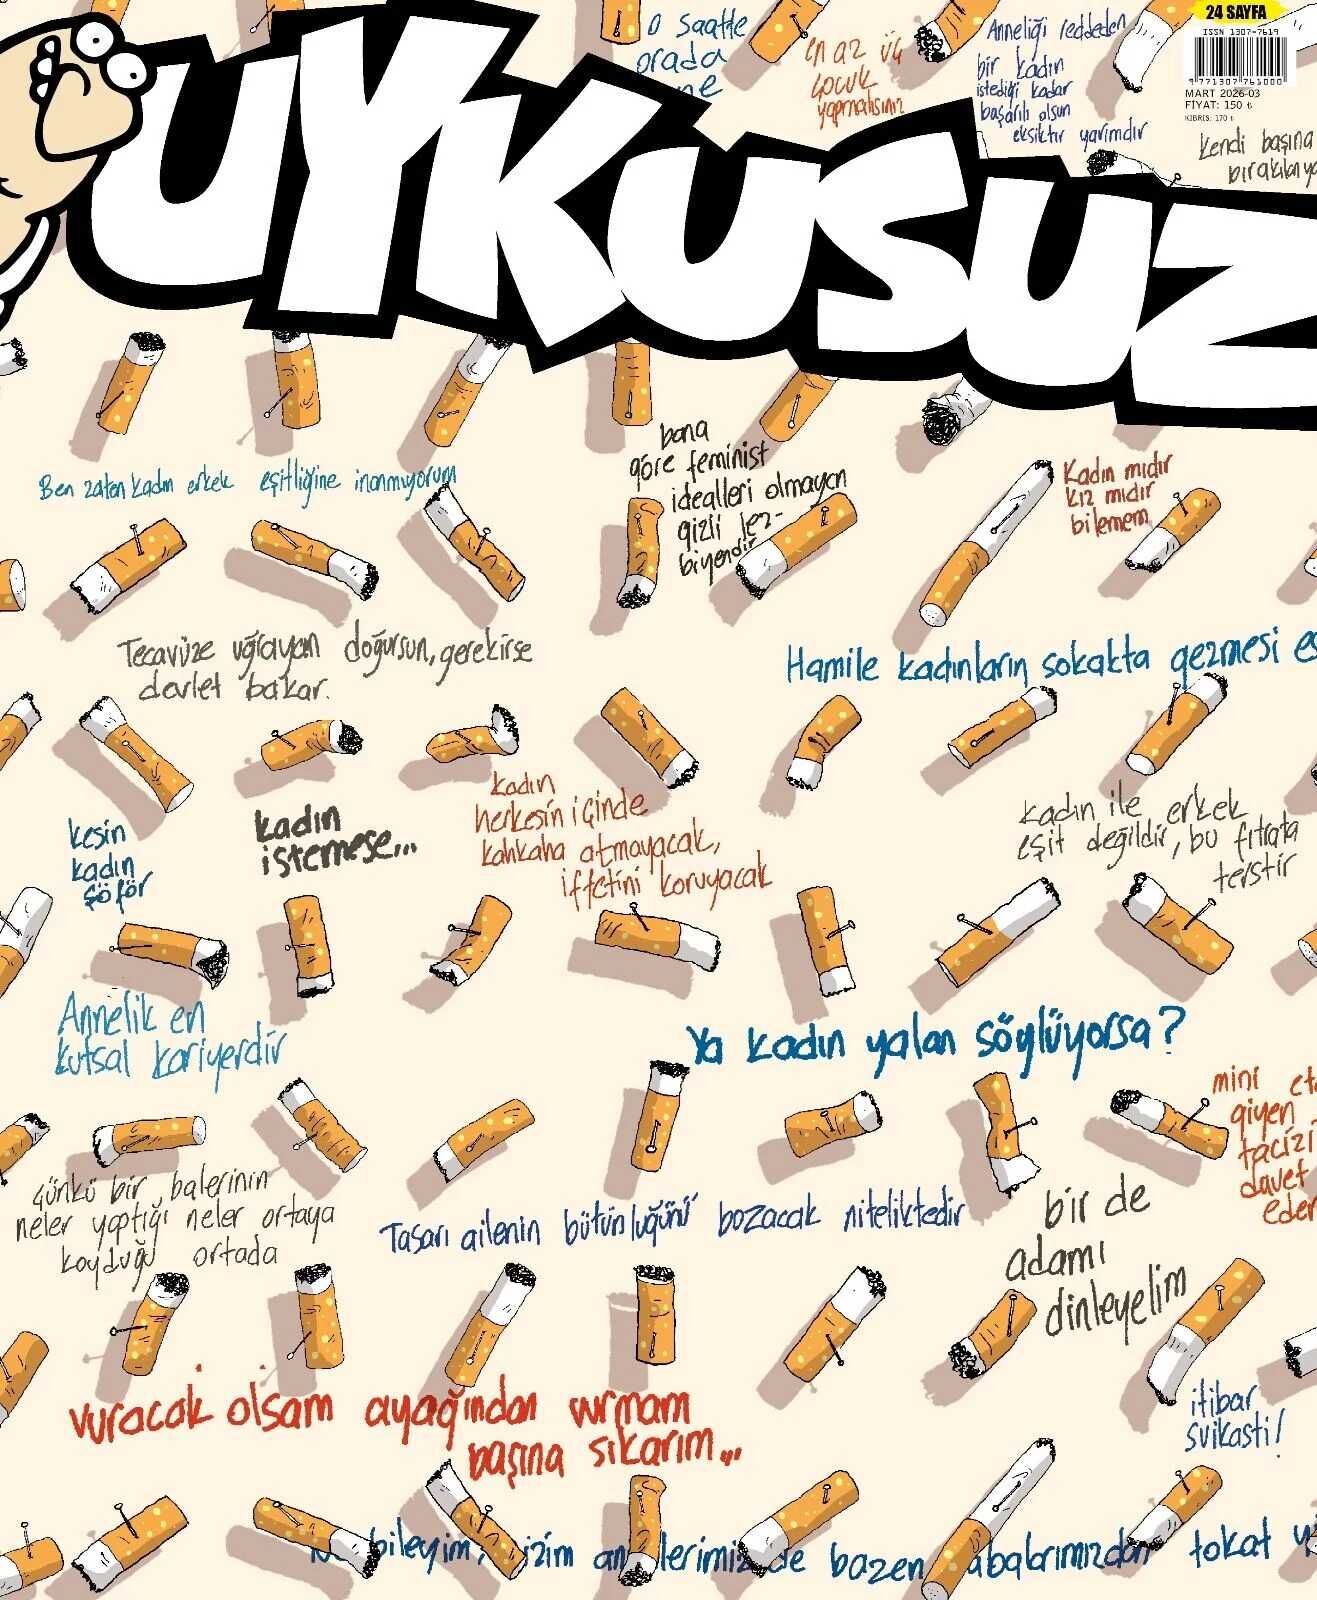 24 SAYFA
ISSN 1307-7619
9 771307 761000
MART 2026-03
FİYAT: 150 ₺
KIBRIS: 170 ₺
O saatte
orada
ne
en az üç
çocuk
yapmalısınız
Anneliği reddeden
bir kadın
istediği kadar
başarılı olsun
eksiktir yarımdır
Kendi başına
UYKUSUZ
Ben zaten kadın erkek eşitliğine inanmıyorum
bana
göre feminist
idealleri olmayan
gizli lez-
biyendir
Kadın mıdır
kız mıdır
bilemem
Tecavüze uğrayan doğursun, gerekirse
devlet bakar.
Hamile kadınların sokakta gezmesi
kesin
kadın
şöför
kadın
istemese...
kadın
herkesin içinde
kahkaha atmayacak,
iffetini koruyacak
Kadın ile erkek
eşit değildir, bu fıtrata
terstir
Annelik en
kutsal kariyerdir
Ya kadın yalan söylüyorsa?
mini
giyen
tacizi
davet
eder
Çünkü bir balerinin
neler yaptığı neler ortaya
koyduğu ortada
Tasarı ailenin bütünlüğünü bozacak niteliktedir
bir de
adamı
dinleyelim
vuracak olsam ayağından vurmam
başına sıkarım...
itibar
suikasti!
bileyim, bazen tokat